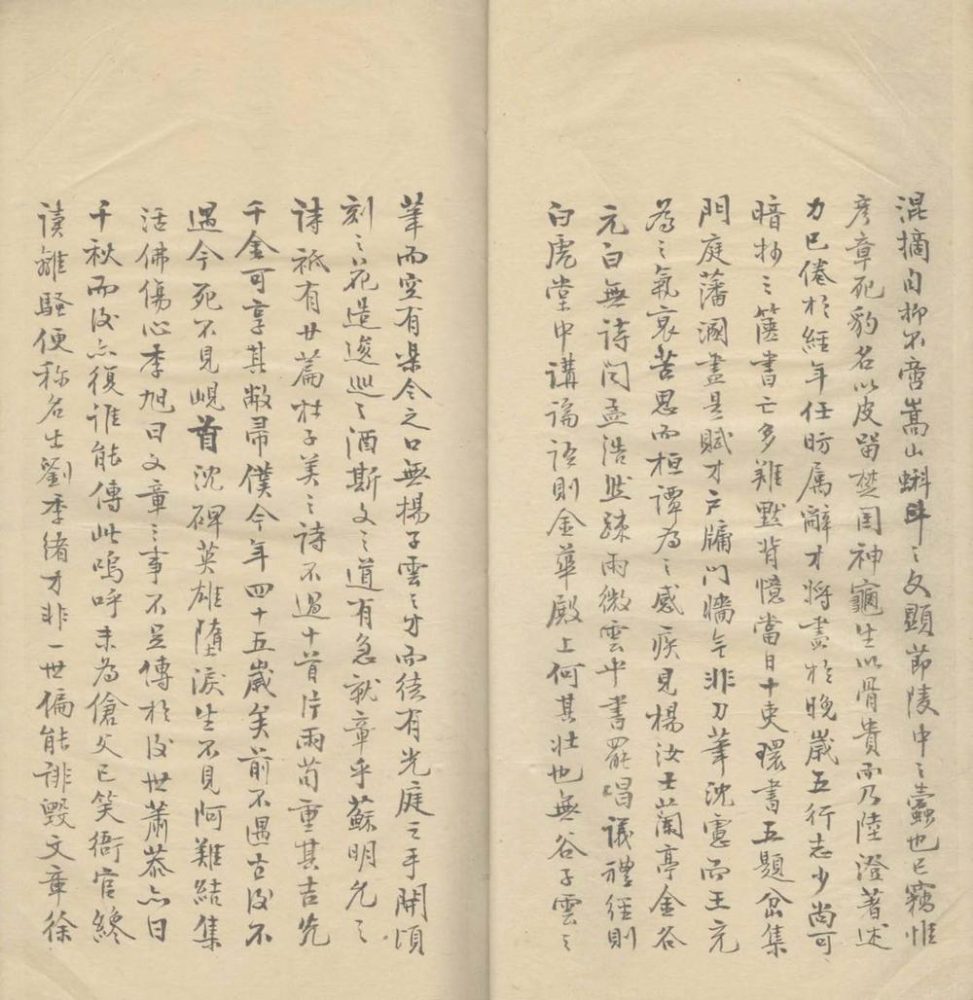 混摘自柳不啻嵩山蝌蚪之文顯節陵中之蠹也已竊惟
彥章死豹名以皮留楚国神龜生以骨貴而乃陸澄著述
力已倦於經年任昉属辭才將盡於晚歲五行志少尚可
暗抄之篋書亡多難默背憶當日十吏環書五題岔集
門庭藩溷盡是賦才戶牖門墻無非刀筆沈憲而王充
為之氣衰苦思而桓譚為之感疾見楊汝士蘭亭金谷
元白無诗闻孟浩然疎雨微雲中書罷唱議禮經則
白虎堂中講論语則金華殿上何其壮也無谷子雲之
筆而空有梁令之口無楊子雲之才而徒有光庭之手開頃
刻之花造逡巡之酒斯文之道有急就章乎蘇明允之
诗祇有廿篇杜子美之诗不過十首片雨苟重其吉光
千金可享其敝帚僕今年四十五歲矣前不遇古後不
遇今死不見峴首沈碑英雄墮淚生不見阿難結集
活佛傷心季旭曰文章之事不足傳於後世蕭恭亦曰
千秋而後亦復誰能傳此嗚呼未為傖父已笑衙官終
读離騷便称名士劉季緒才非一世偏能誹毀文章徐